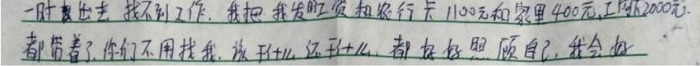 一时出去找不到工作.我把我发的工资和农行卡1100元和家里400元,工商下2000元.
都带着了.你们不用找我.该干什么还干什么.都好好照顾自己.我会好